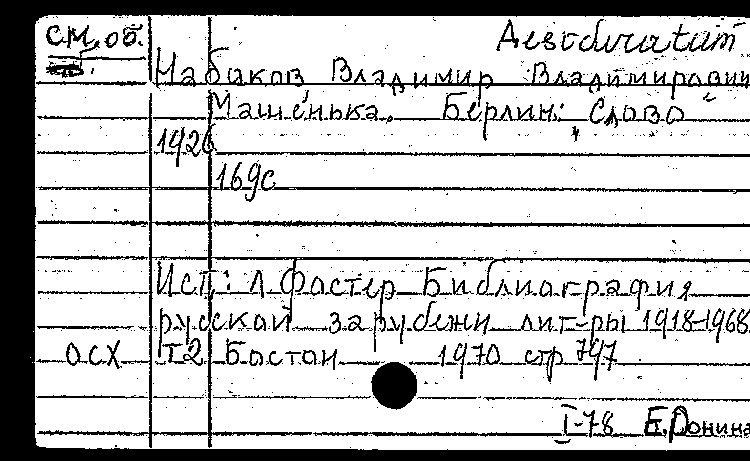 см. об.
Деsideratum
Набаков Владимир Владимирович
Машенька. Берлин: Слово
1926
169с
Исп: Л Фостер Библиография
русской зарубежн лит-ры 1918-1968
ОСХ Т2 Бостон 1970 стр 797
I-78 Е.Ронина